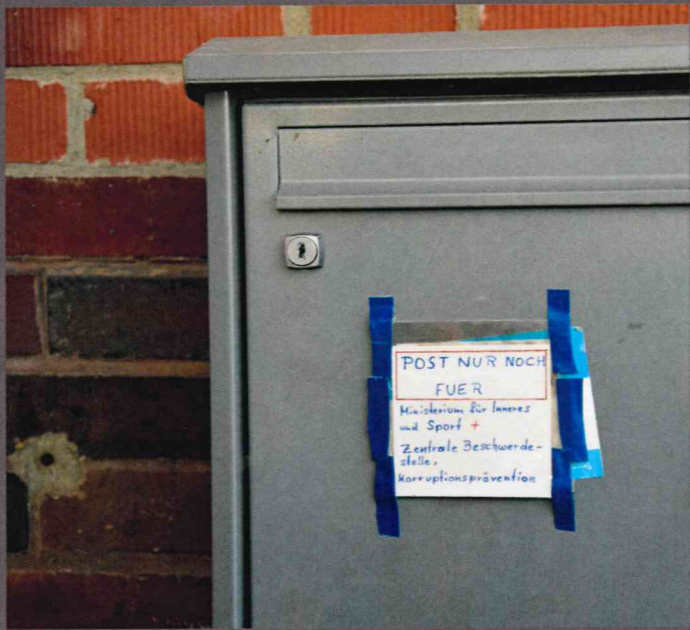 POST NUR NOCH
FUER
Ministerium für Inneres
und Sport +
Zentrale Beschwerde-
stelle,
Korruptionsprävention